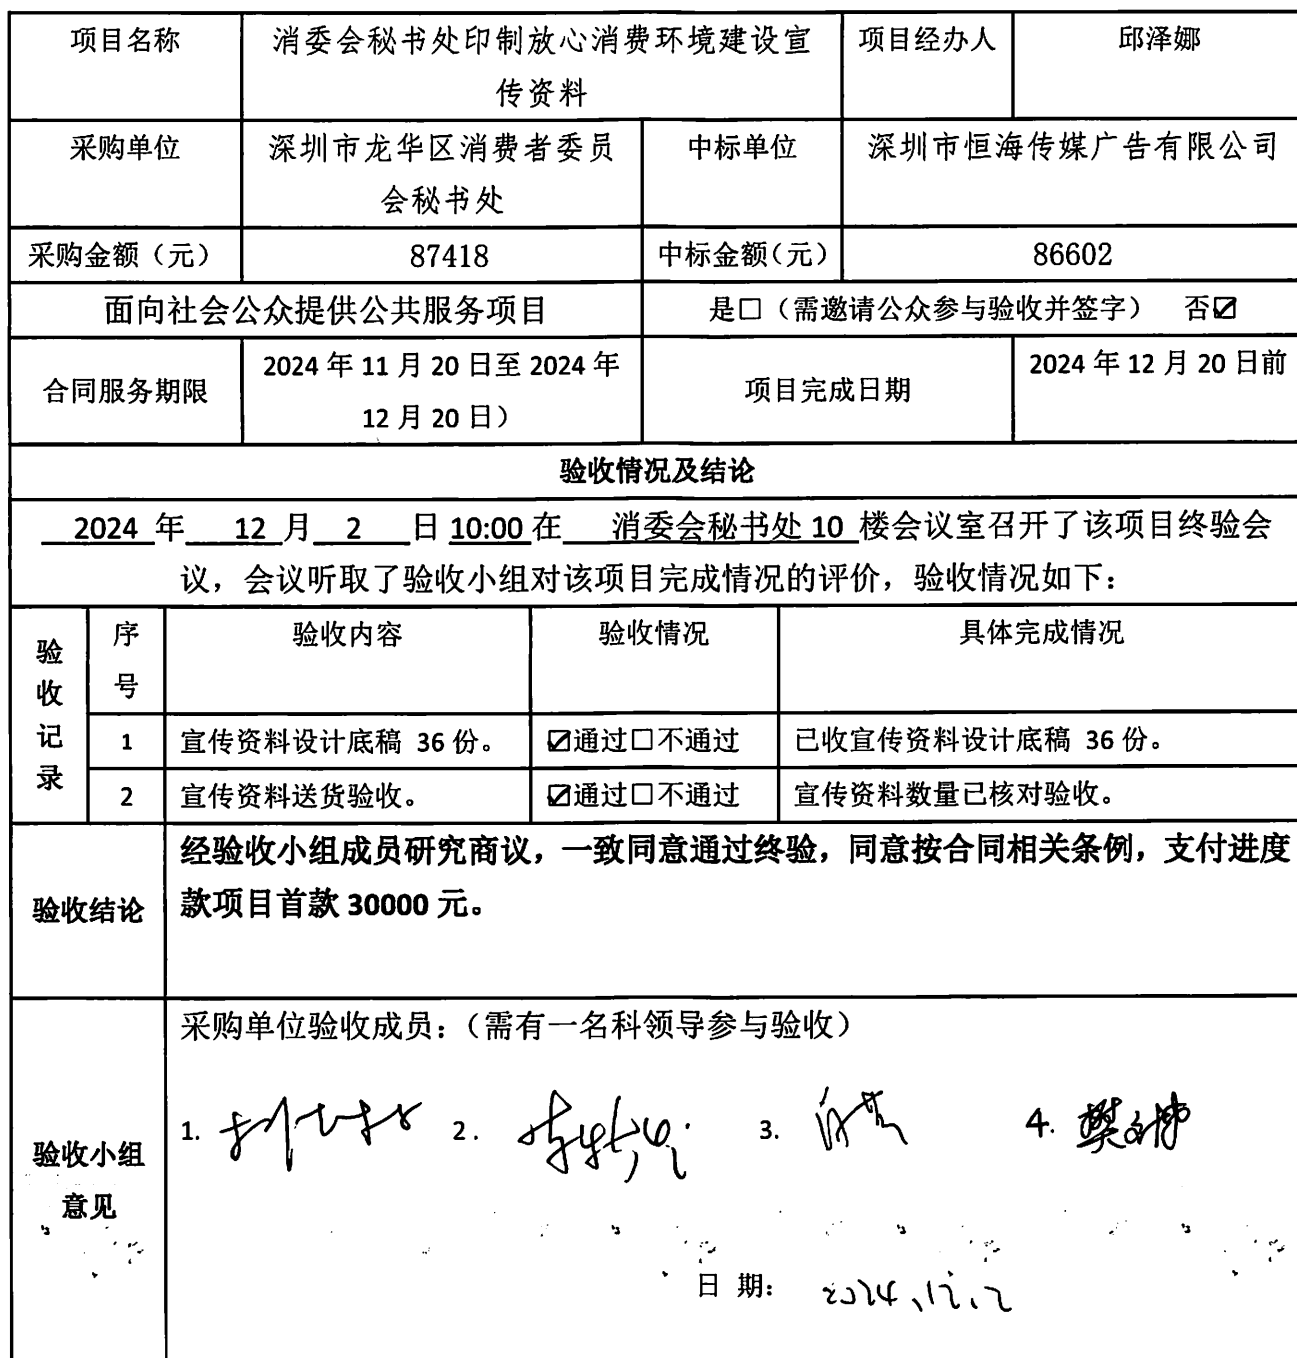 项目名称 消委会秘书处印制放心消费环境建设宣 项目经办人 邱泽娜
传资料
采购单位 深圳市龙华区消费者委员 中标单位 深圳市恒海传媒广告有限公司
会秘书处
采购金额（元） 87418 中标金额（元） 86602
面向社会公众提供公共服务项目 是□（需邀请公众参与验收并签字） 否☑
合同服务期限 2024 年 11 月 20 日至 2024 年 项目完成日期 2024 年 12 月 20 日前
12 月 20 日）
验收情况及结论
2024 年 12 月 2 日 10:00 在 消委会秘书处 10 楼会议室召开了该项目终验会
议，会议听取了验收小组对该项目完成情况的评价，验收情况如下：
验收记录 序号 验收内容 验收情况 具体完成情况
1 宣传资料设计底稿 36 份。 ☑通过□不通过 已收宣传资料设计底稿 36 份。
2 宣传资料送货验收。 ☑通过□不通过 宣传资料数量已核对验收。
验收结论 经验收小组成员研究商议，一致同意通过终验，同意按合同相关条例，支付进度
款项目首款 30000 元。
验收小组
意见
采购单位验收成员：（需有一名科领导参与验收）
1. 2. 3. 4.
日 期： 2024.12.2